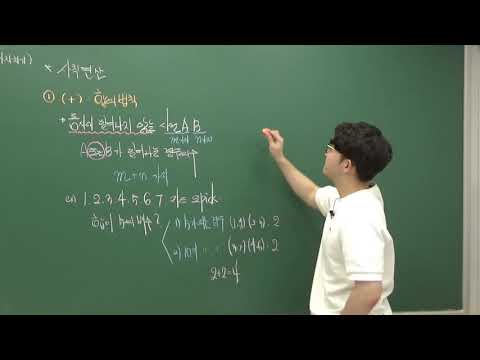 * 사칙연산
① (+) 합의 법칙
+ 동시에 일어나지 않는 사건 A B
m가지 n가지
A 또는 B가 일어나는 경우의 수
m + n 가지
ex) 1. 2. 3. 4. 5. 6. 7 카드 2pick
합이 5의 배수?
1) 5가 되는 경우 (1,4) (2,3) : 2
2) 10 " " (3,7) (4,6) : 2
2+2=4